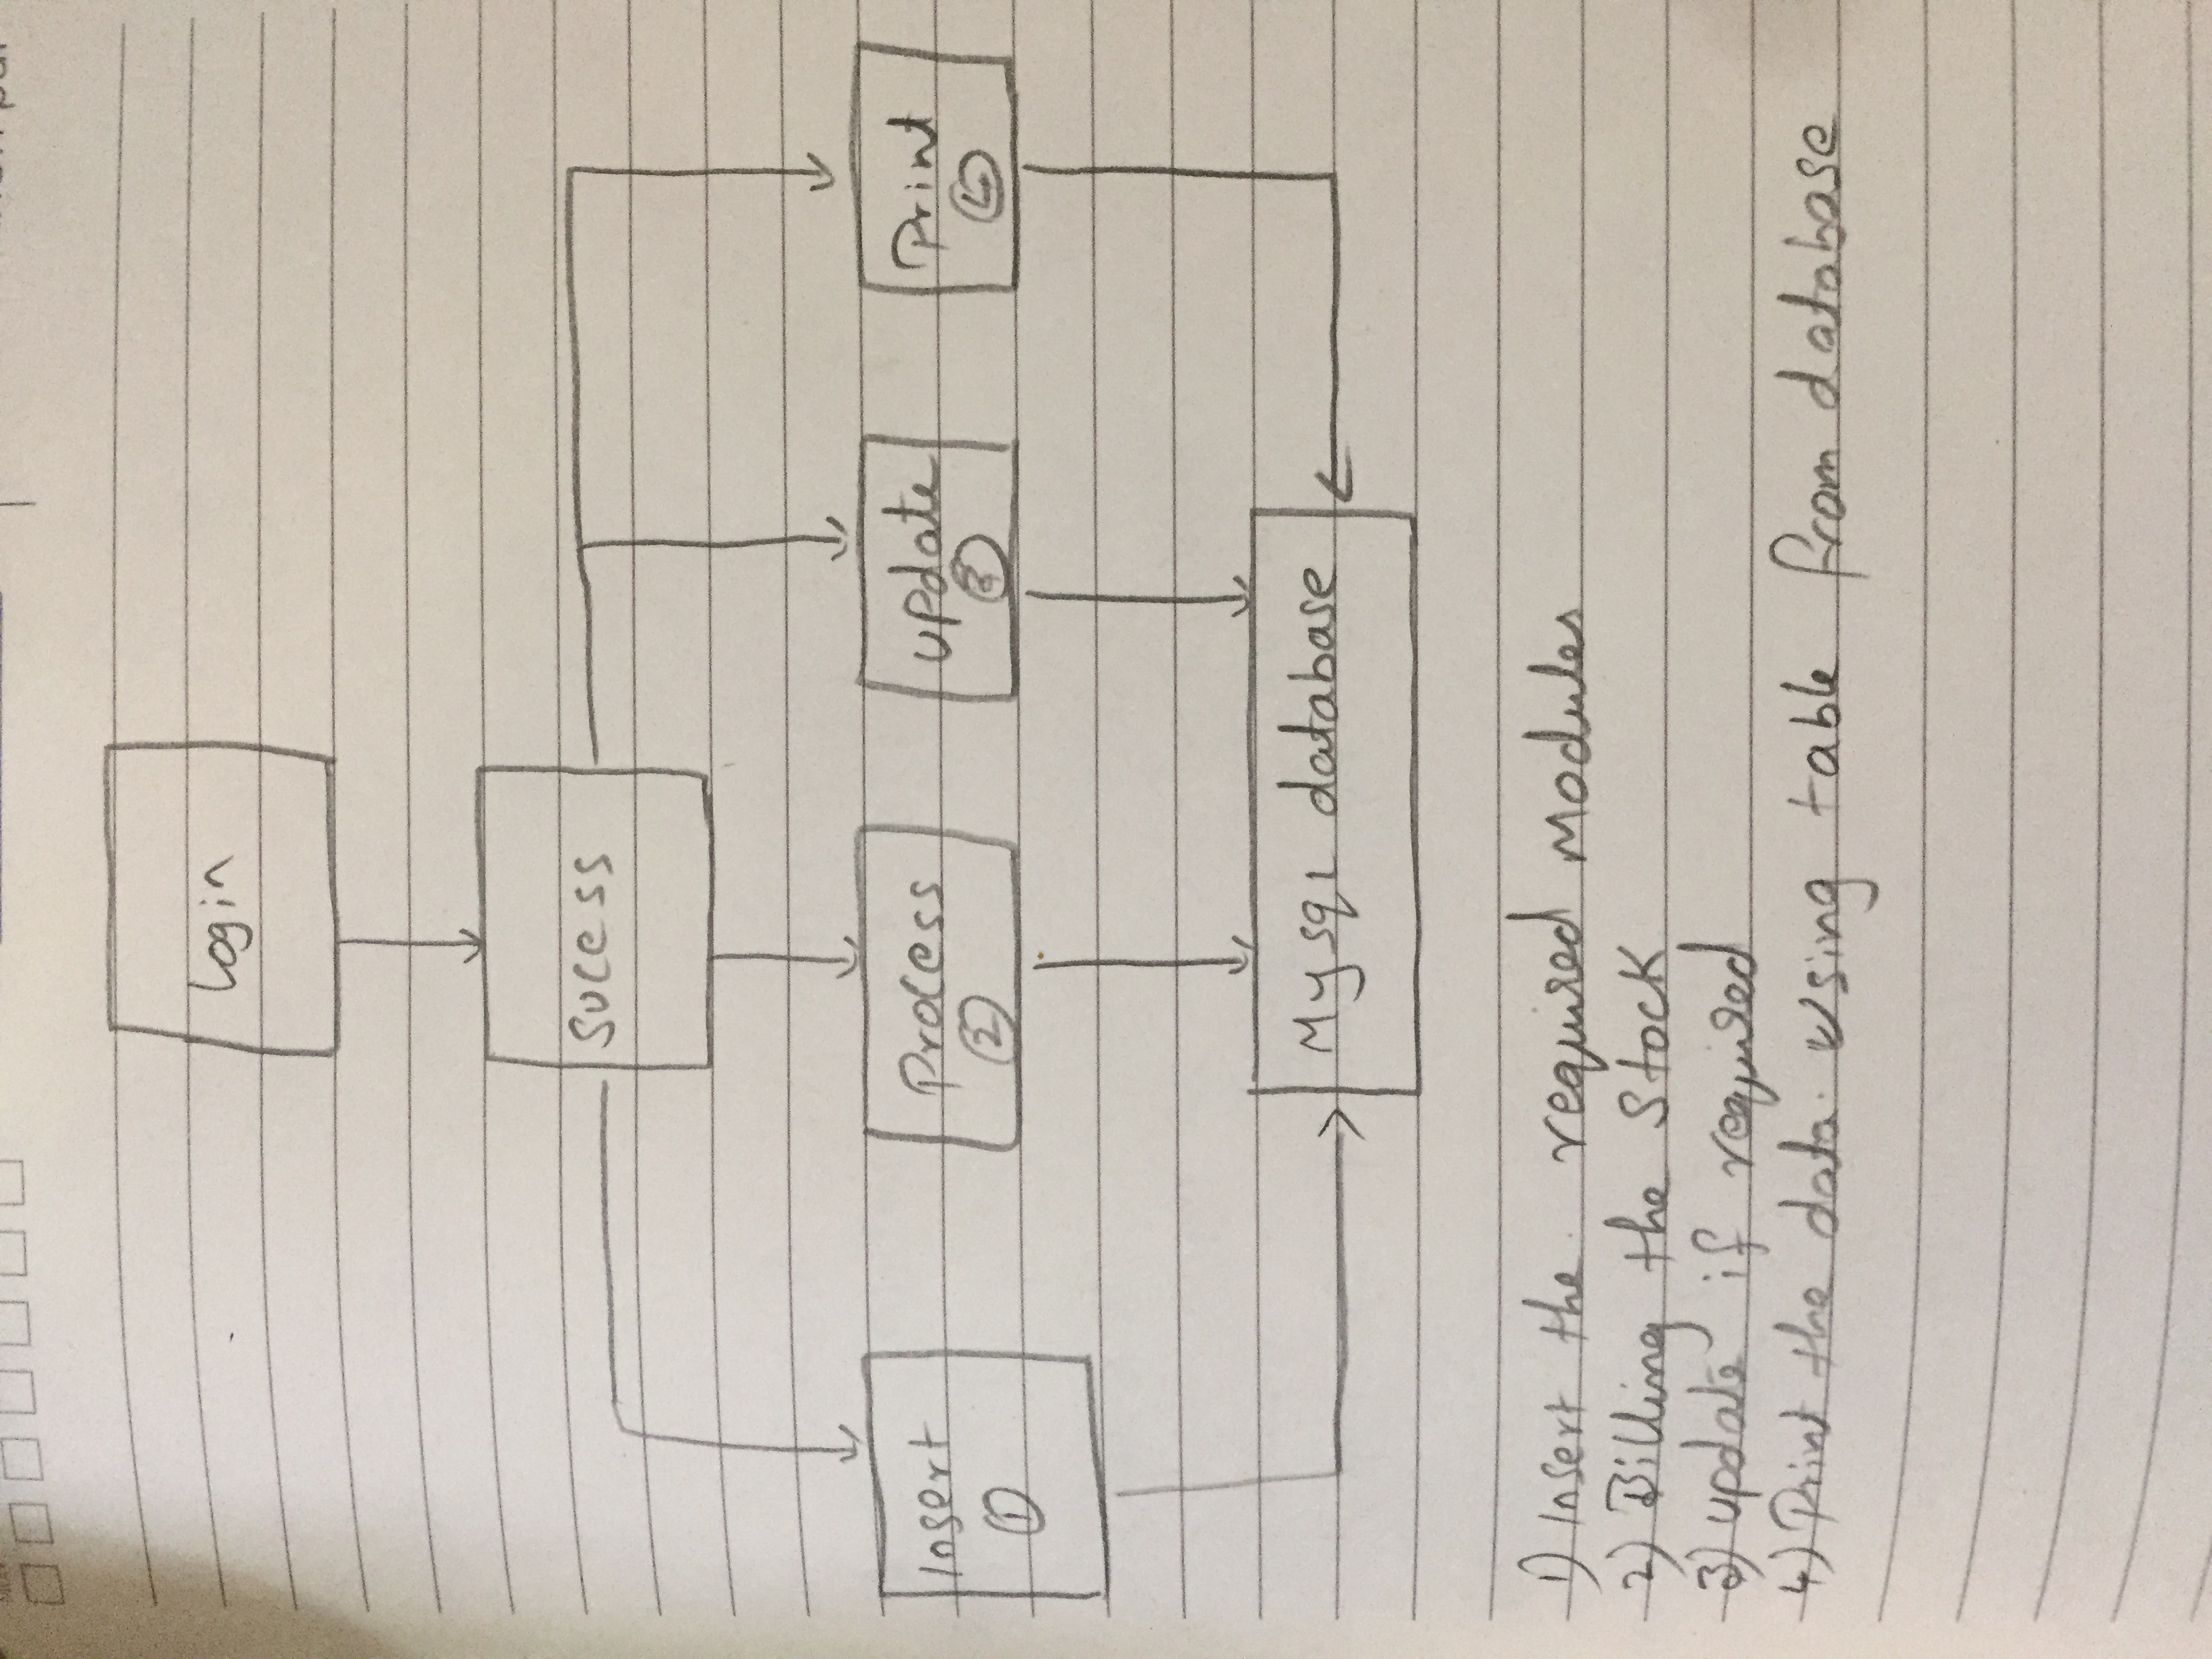 Login
Sucess
Insert
①
Process
②
update
③
Print
④
Mysql database
1) Insert the required Modules
2) Billing the Stock
3) update if required
4) Print the data using table from database